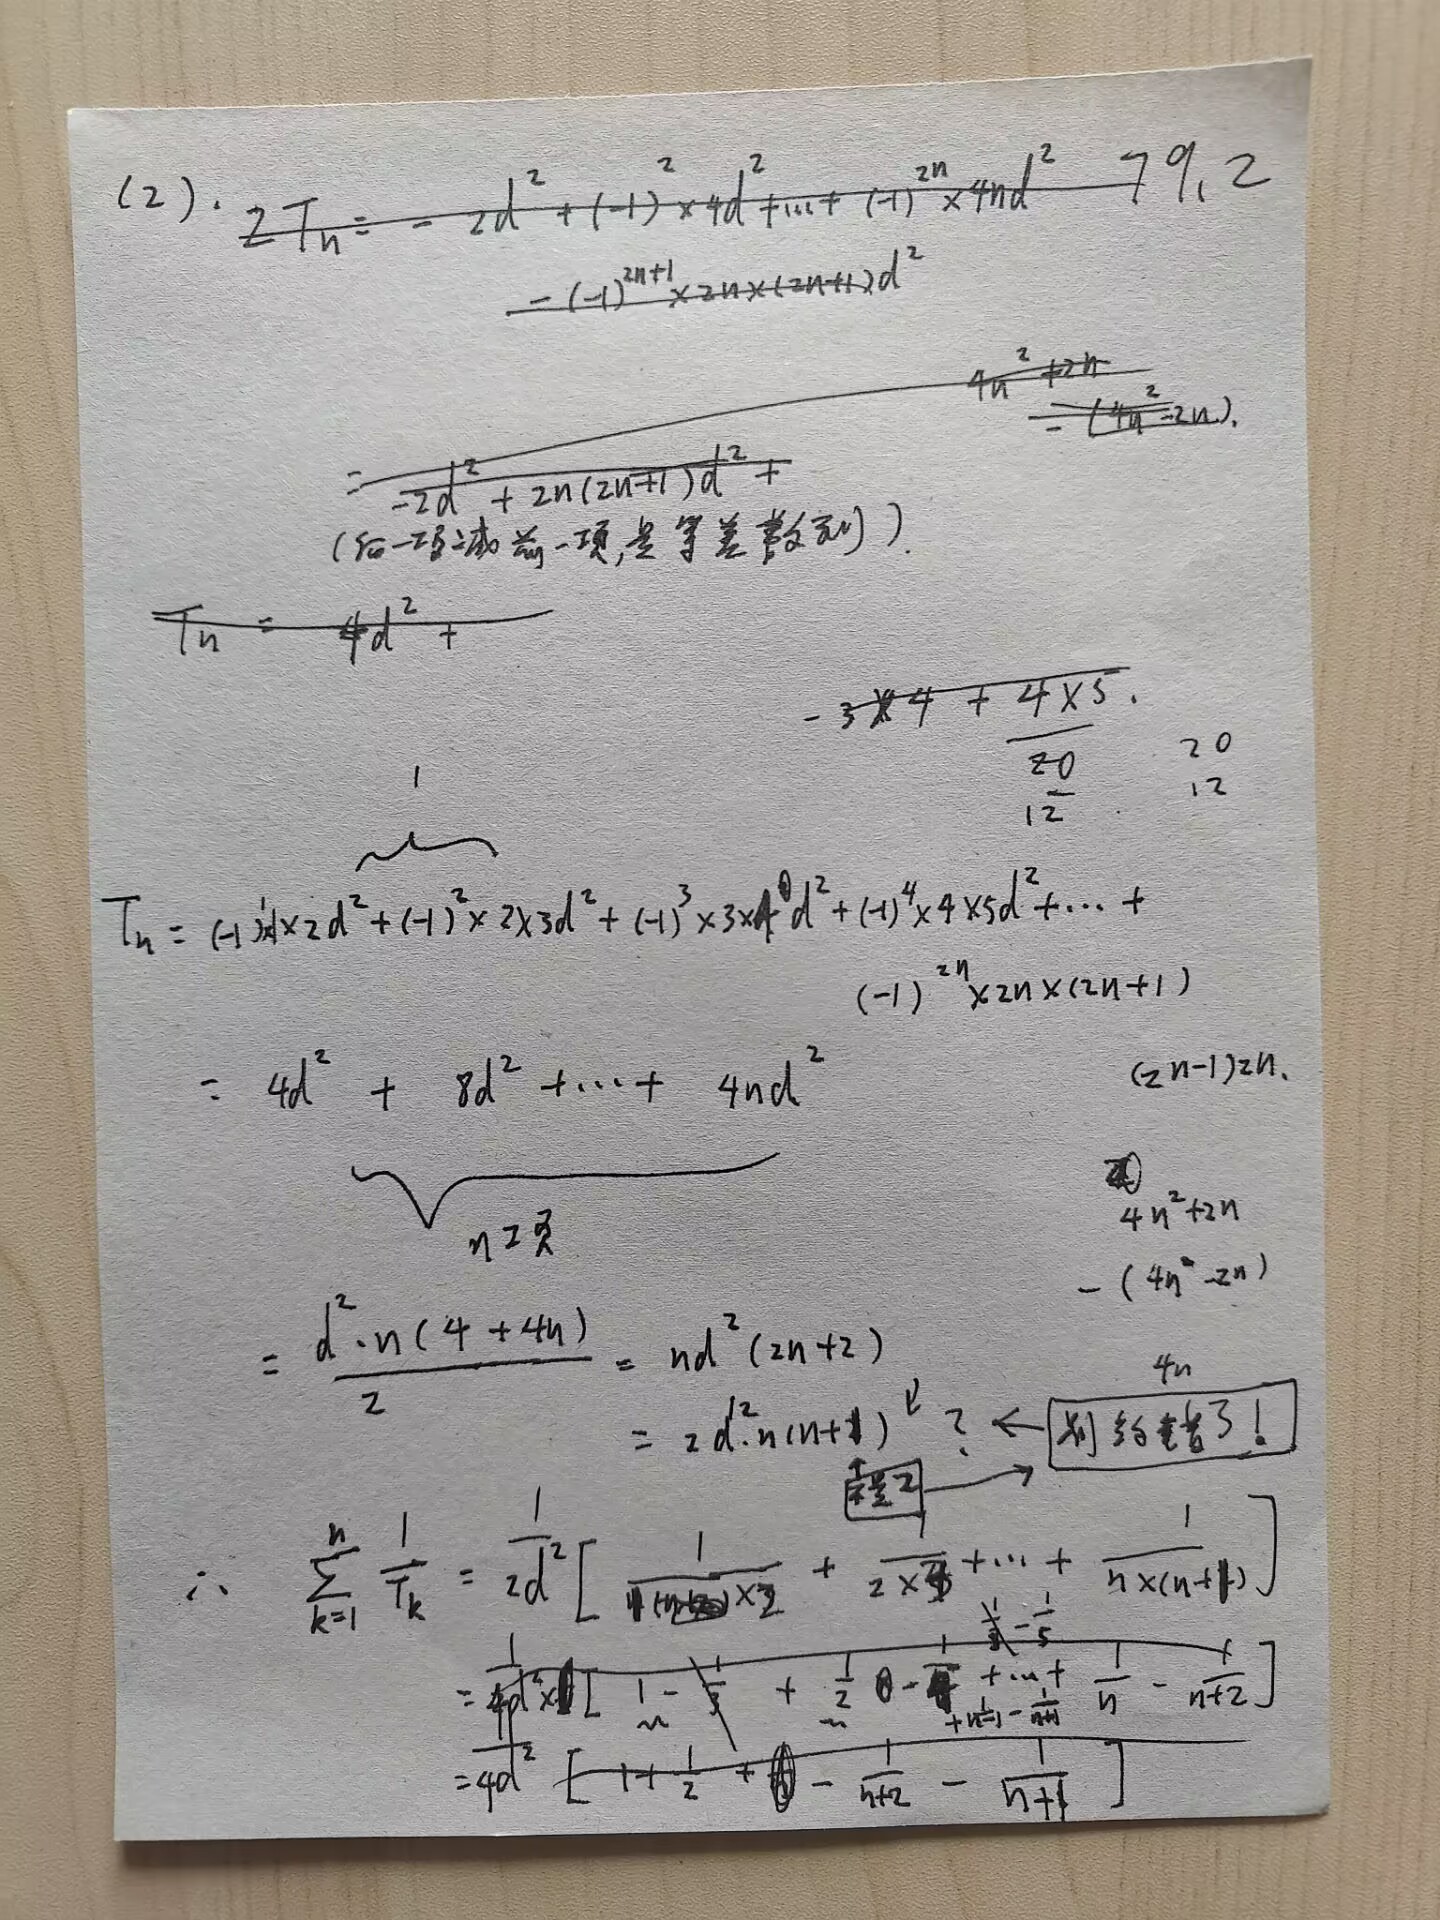 (2). 2Tn = - 2d² + (-1)² × 4d² + … + (-1)^{2n} × 4nd² 79.2
- (-1)^{2n+1} × 2n × (2n+1)d²
4n² + 2n
- (4n² - 2n).
= -2d² + 2n(2n+1)d² +
(后一项减前一项,是等差数列).
Tn = 4d² +
- 3×4 + 4×5.
20 20
12 12
1
Tn = (-1)¹×1×2d² + (-1)²×2×3d² + (-1)³×3×4d² + (-1)⁴×4×5d² + … +
(-1)^{2n}×2n×(2n+1)
= 4d² + 8d² + … + 4nd² (2n-1)2n.
n
4n² + 2n
- (4n² - 2n)
= d²·n(4+4n)/2 = nd²(2n+2)
4n
= 2d²·n(n+1) ? ← 错了!
2 →
∴ \sum_{k=1}^{n} 1/T_k = 1/2d² [ 1/1×2 + 1/2×3 + … + 1/n×(n+1) ]
1/3 - 1/5
= 1/4d² [ 1 - 1/3 + 1/2 - 1/4 + … + 1/n - 1/n+2 ]
+ 1/n-1 - 1/n+1
= 1/4d² [ 1 + 1/2 - 1/n+2 - 1/n+1 ]